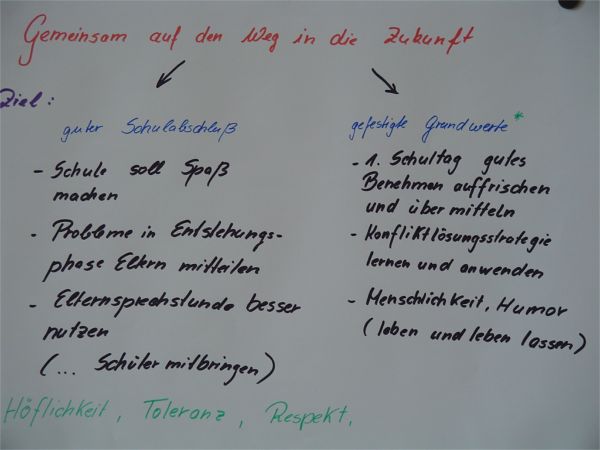 Gemeinsam auf den Weg in die Zukunft
Ziel:
guter Schulabschluß
- Schule soll Spaß
machen
- Probleme in Entstehungs-
phase Eltern mitteilen
- Elternsprechstunde besser
nutzen
(... Schüler mitbringen)
gefestigte Grundwerte *
- 1. Schultag gutes
Benehmen auffrischen
und über mitteln
- Konfliktlösungsstrategie
lernen und anwenden
- Menschlichkeit, Humor
(leben und leben lassen)
Höflichkeit, Toleranz, Respekt,